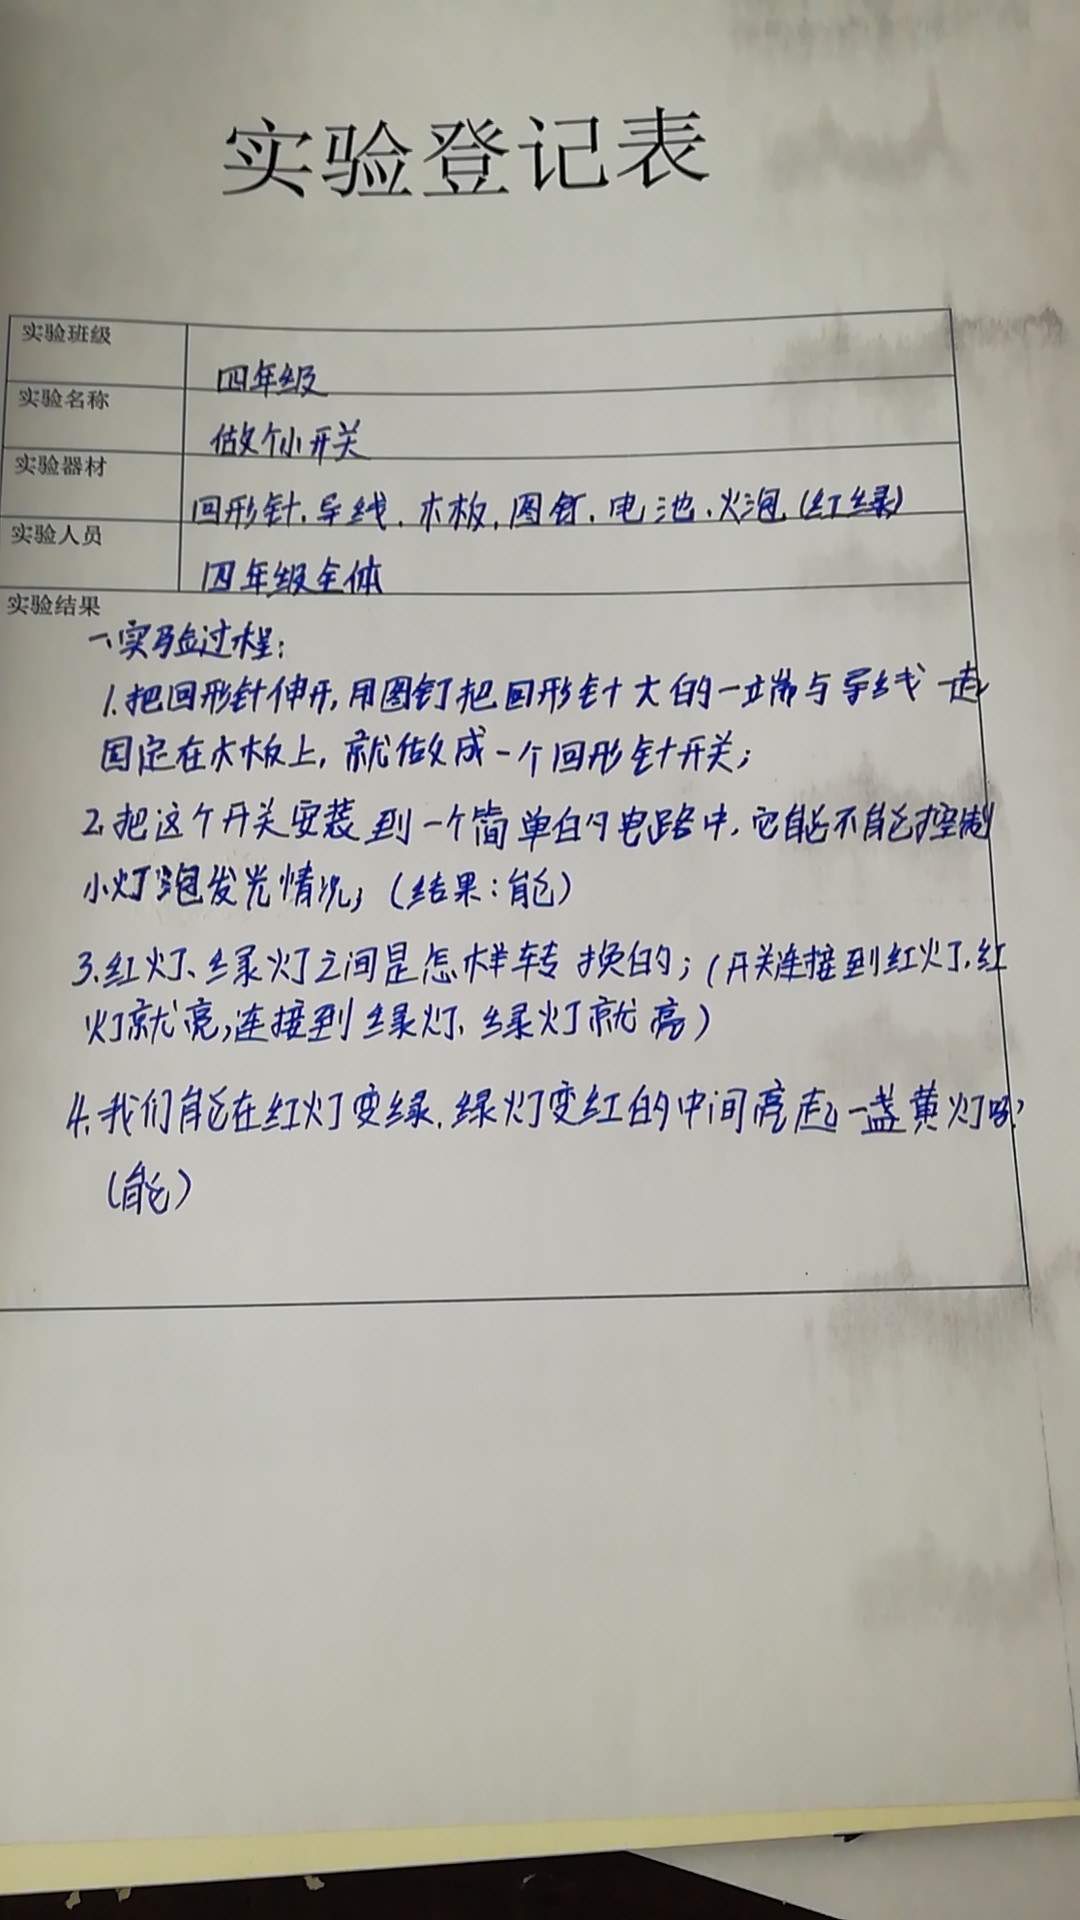 实验登记表
实验班级 四年级
实验名称 做个小开关
实验器材 回形针、导线、木板、图钉、电池、火泡(红绿)
实验人员 四年级全体
实验结果
一、实验过程:
1.把回形针伸开,用图钉把回形针大的一端与导线一起
固定在木板上,就做成一个回形针开关;
2.把这个开关安装到一个简单的电路中,它能不能控制
小灯泡发光情况;(结果:能)
3.红灯、绿灯之间是怎样转换的;(开关连接到红灯,红
灯就亮,连接到绿灯、绿灯就亮)
4.我们能在红灯变绿,绿灯变红的中间亮起一盏黄灯吗?
(能)